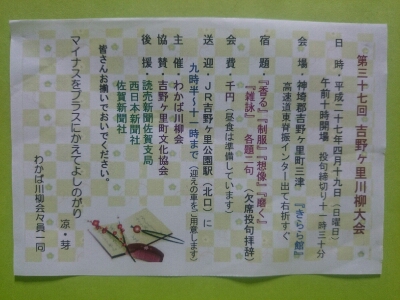 第三十七回 吉野ヶ里川柳大会
日 時・平成二十七年四月十九日(日曜日)
午前十時開場 投句締切り十一時三十分
会 場・神埼郡吉野ヶ里町三津 『きらら館』
高速道東脊振インター出て右折すぐ
宿 題・『香る』『制服』『想像』『磨く』
『雑詠』 各題二句 (欠席投句拝辞)
会 費・千円(昼食は準備しています)
送 迎・JR吉野ヶ里公園駅(北口)に
九時半~十一時まで(迎えの車をご用意します)
主 催・わかば川柳会
協 賛・吉野ヶ里町文化協会
後 援・読売新聞佐賀支局
西日本新聞社
佐賀新聞社
皆さんお揃いでおいでください。
マイナスをプラスにかえてよしのがり
凉・芽
わかば川柳会々員一同